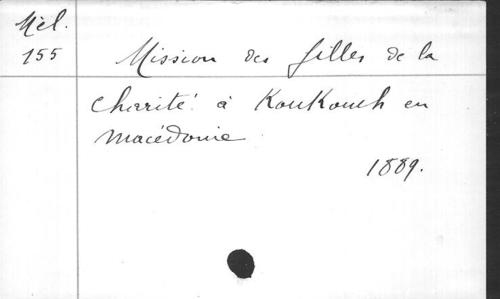 Mél.
155
Mission des filles de la
Charité à Koukouch en
Macédonie
1889.